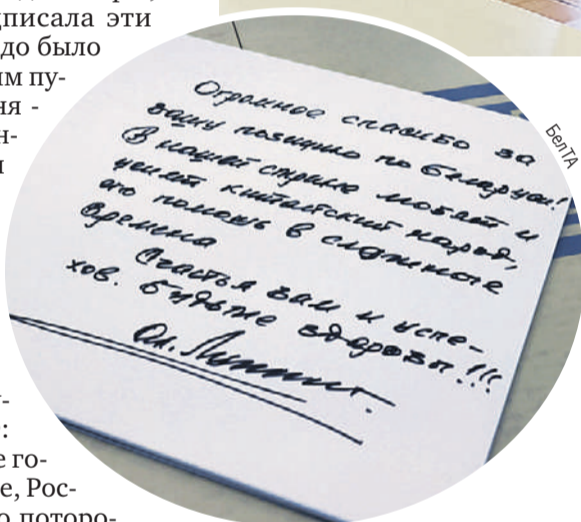 дписала эти
до было
им пу-
ня -
н-
Огромное спасибо за
вашу позицию по Беларуси!
В нашей стране любят и
ценят китайский народ,
его помощь в сложные
времена
Счастья вам и успе-
хов. Будьте здоровы!!!
БелТА
у-
:
е го-
е, Рос-
о поторо-